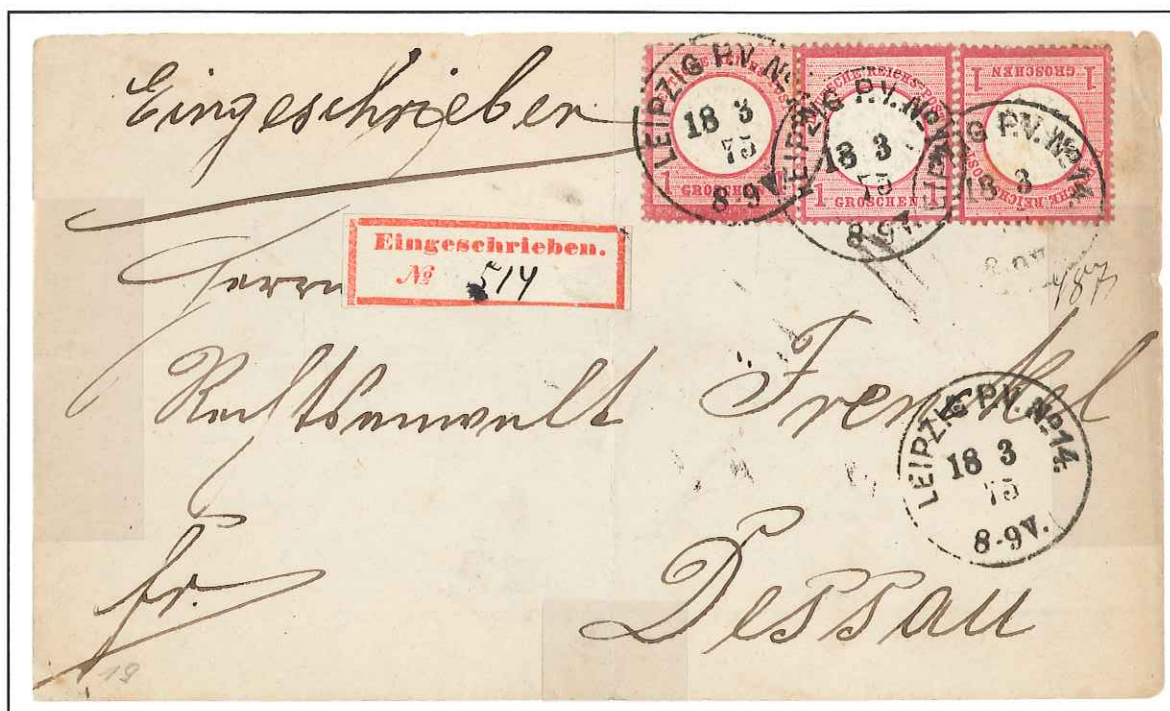 Eingeschrieben
LEIPZIG P.V. No
18 3
75
8-9V.
LEIPZIG P.V. No 14.
18 3
75
8-9V.
LEIPZIG P.V. No 14.
18 3
DEUTSCHE REICHS-POST
1 GROSCHEN 1
DEUTSCHE REICHS-POST
1 GROSCHEN 1
DEUTSCHE REICHS-POST
1 GROSCHEN 1
Eingeschrieben.
No 514
Herrn
187
Rechtsanwalt Frenkel
LEIPZIG P.V. No 14.
18 3
75
8-9V.
fr.
Dessau